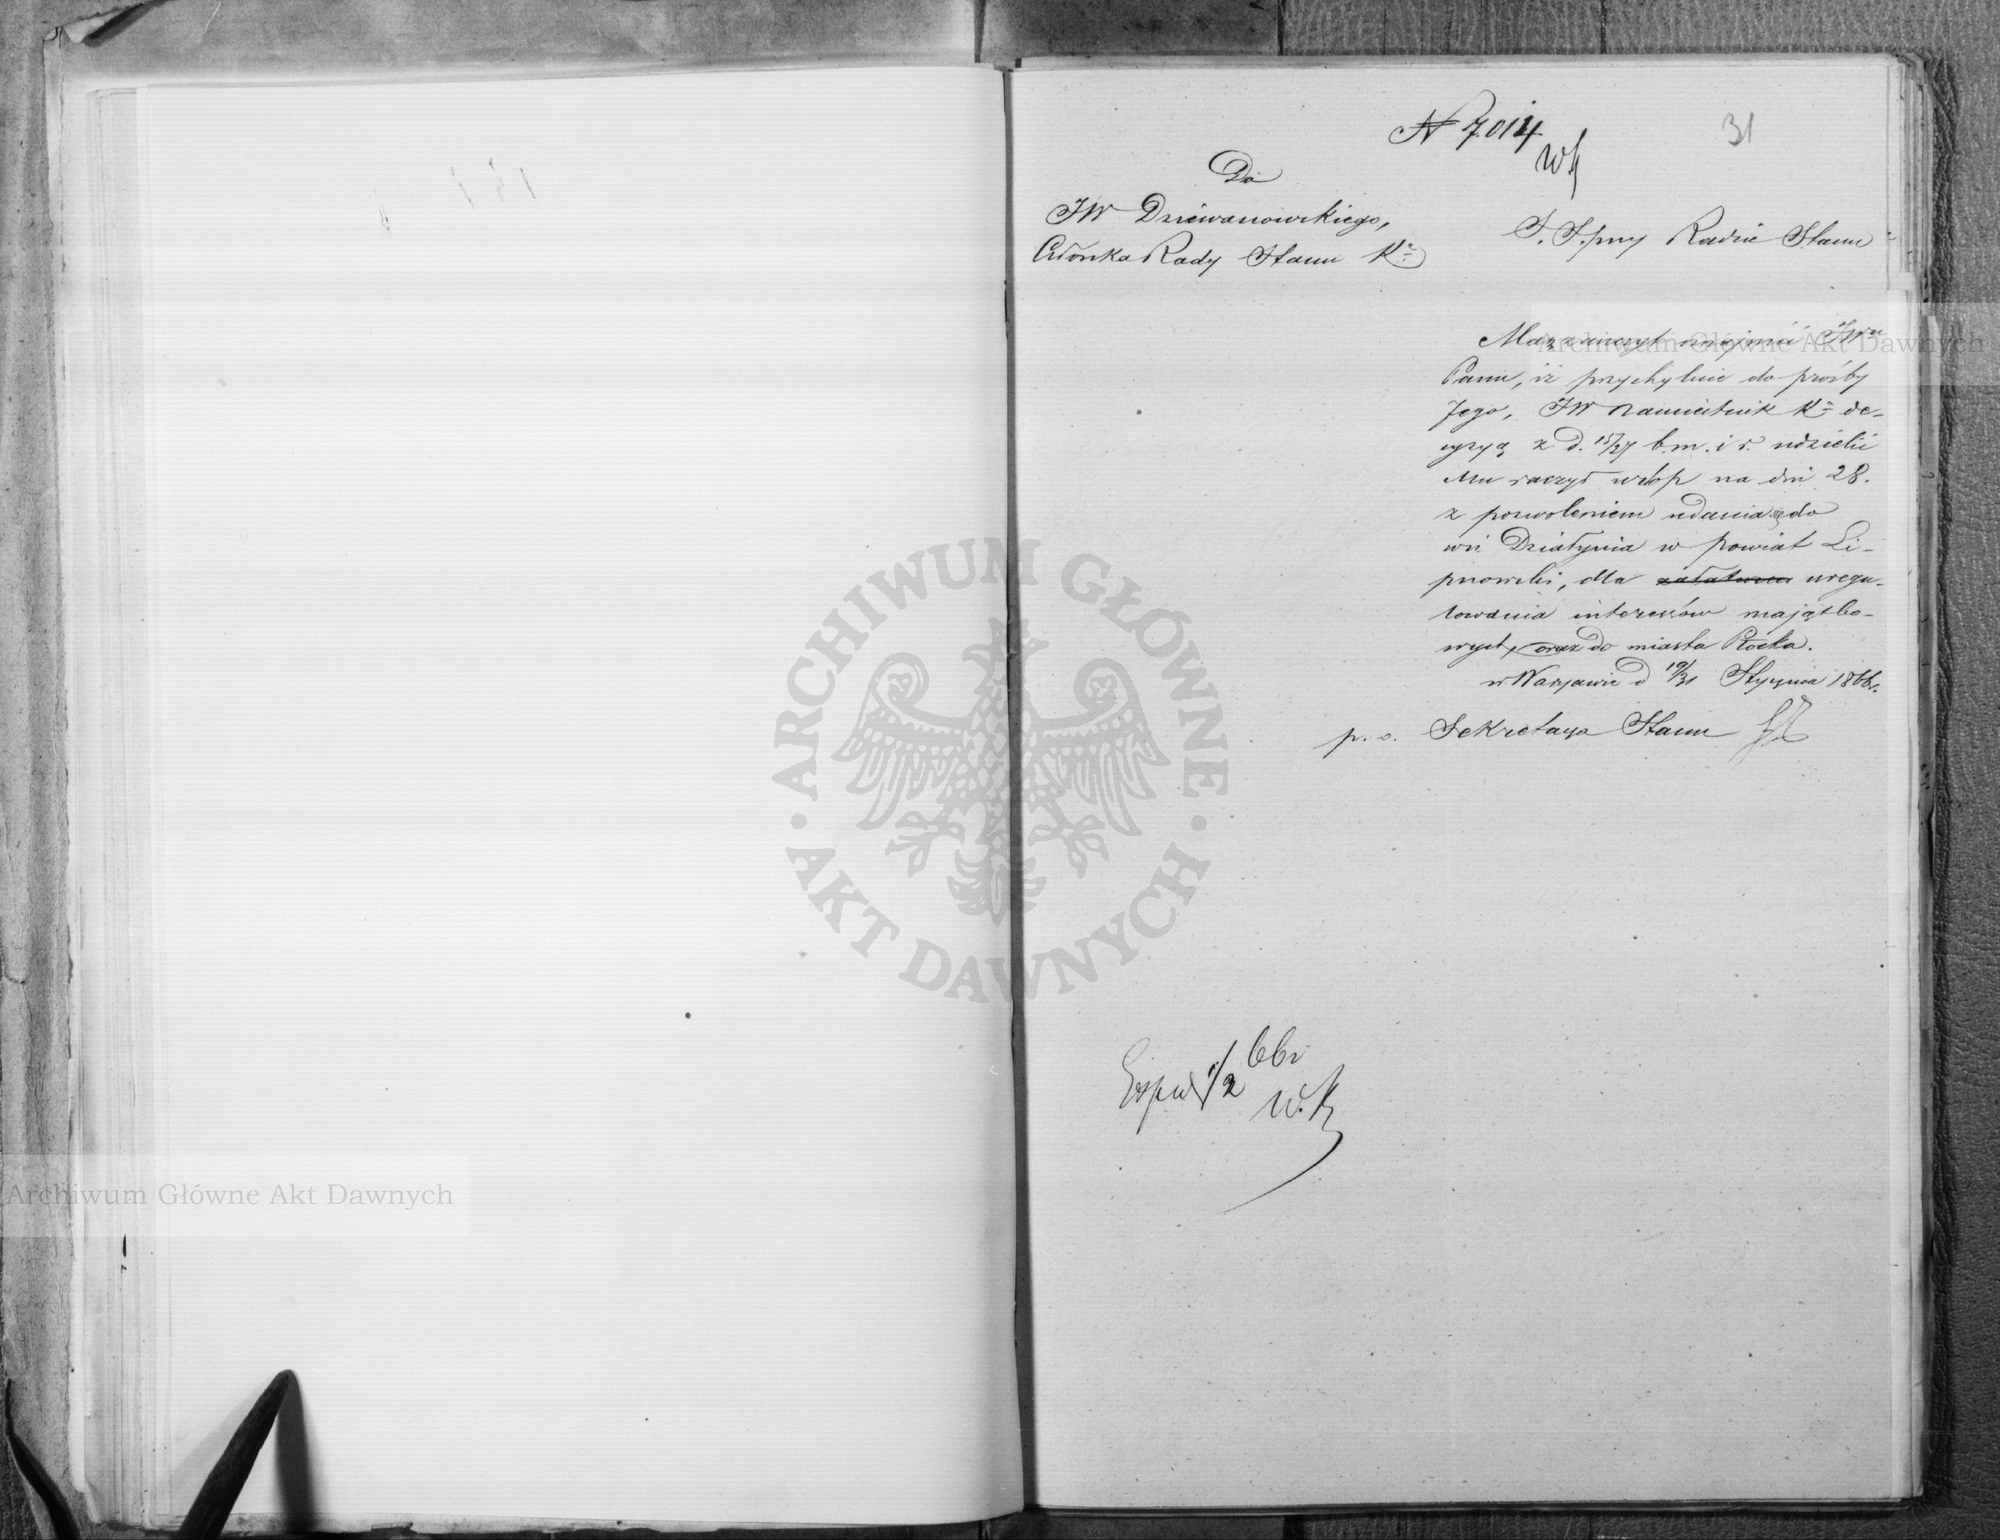 N 7014
31
Do
JW Dziewanowskiego,
Członka Rady Stanu Kr
S. S. przy Radzie Stanu
Mam zaszczyt oznajmić JWu
Panu, iż przychylnie do prośby
Jego, JW Namiestnik Kr de-
cyzyą z d. 15/27 b.m. i r. udzielić
Mu raczył urlop na dni 28.
z pozwoleniem udania się do
wsi Działynia w powiat Li-
pnowski, dla załatwien uregu-
lowania interesów majątko-
wych, oraz do miasta Płocka.
w Warszawie d 19/31 Stycznia 1866 r.
p. o. Sekretarza Stanu
1/2 66 r
W. K
Archiwum Główne Akt Dawnych
ARCHIWUM GŁÓWNE
AKT DAWNYCH
Archiwum Główne Akt Dawnych